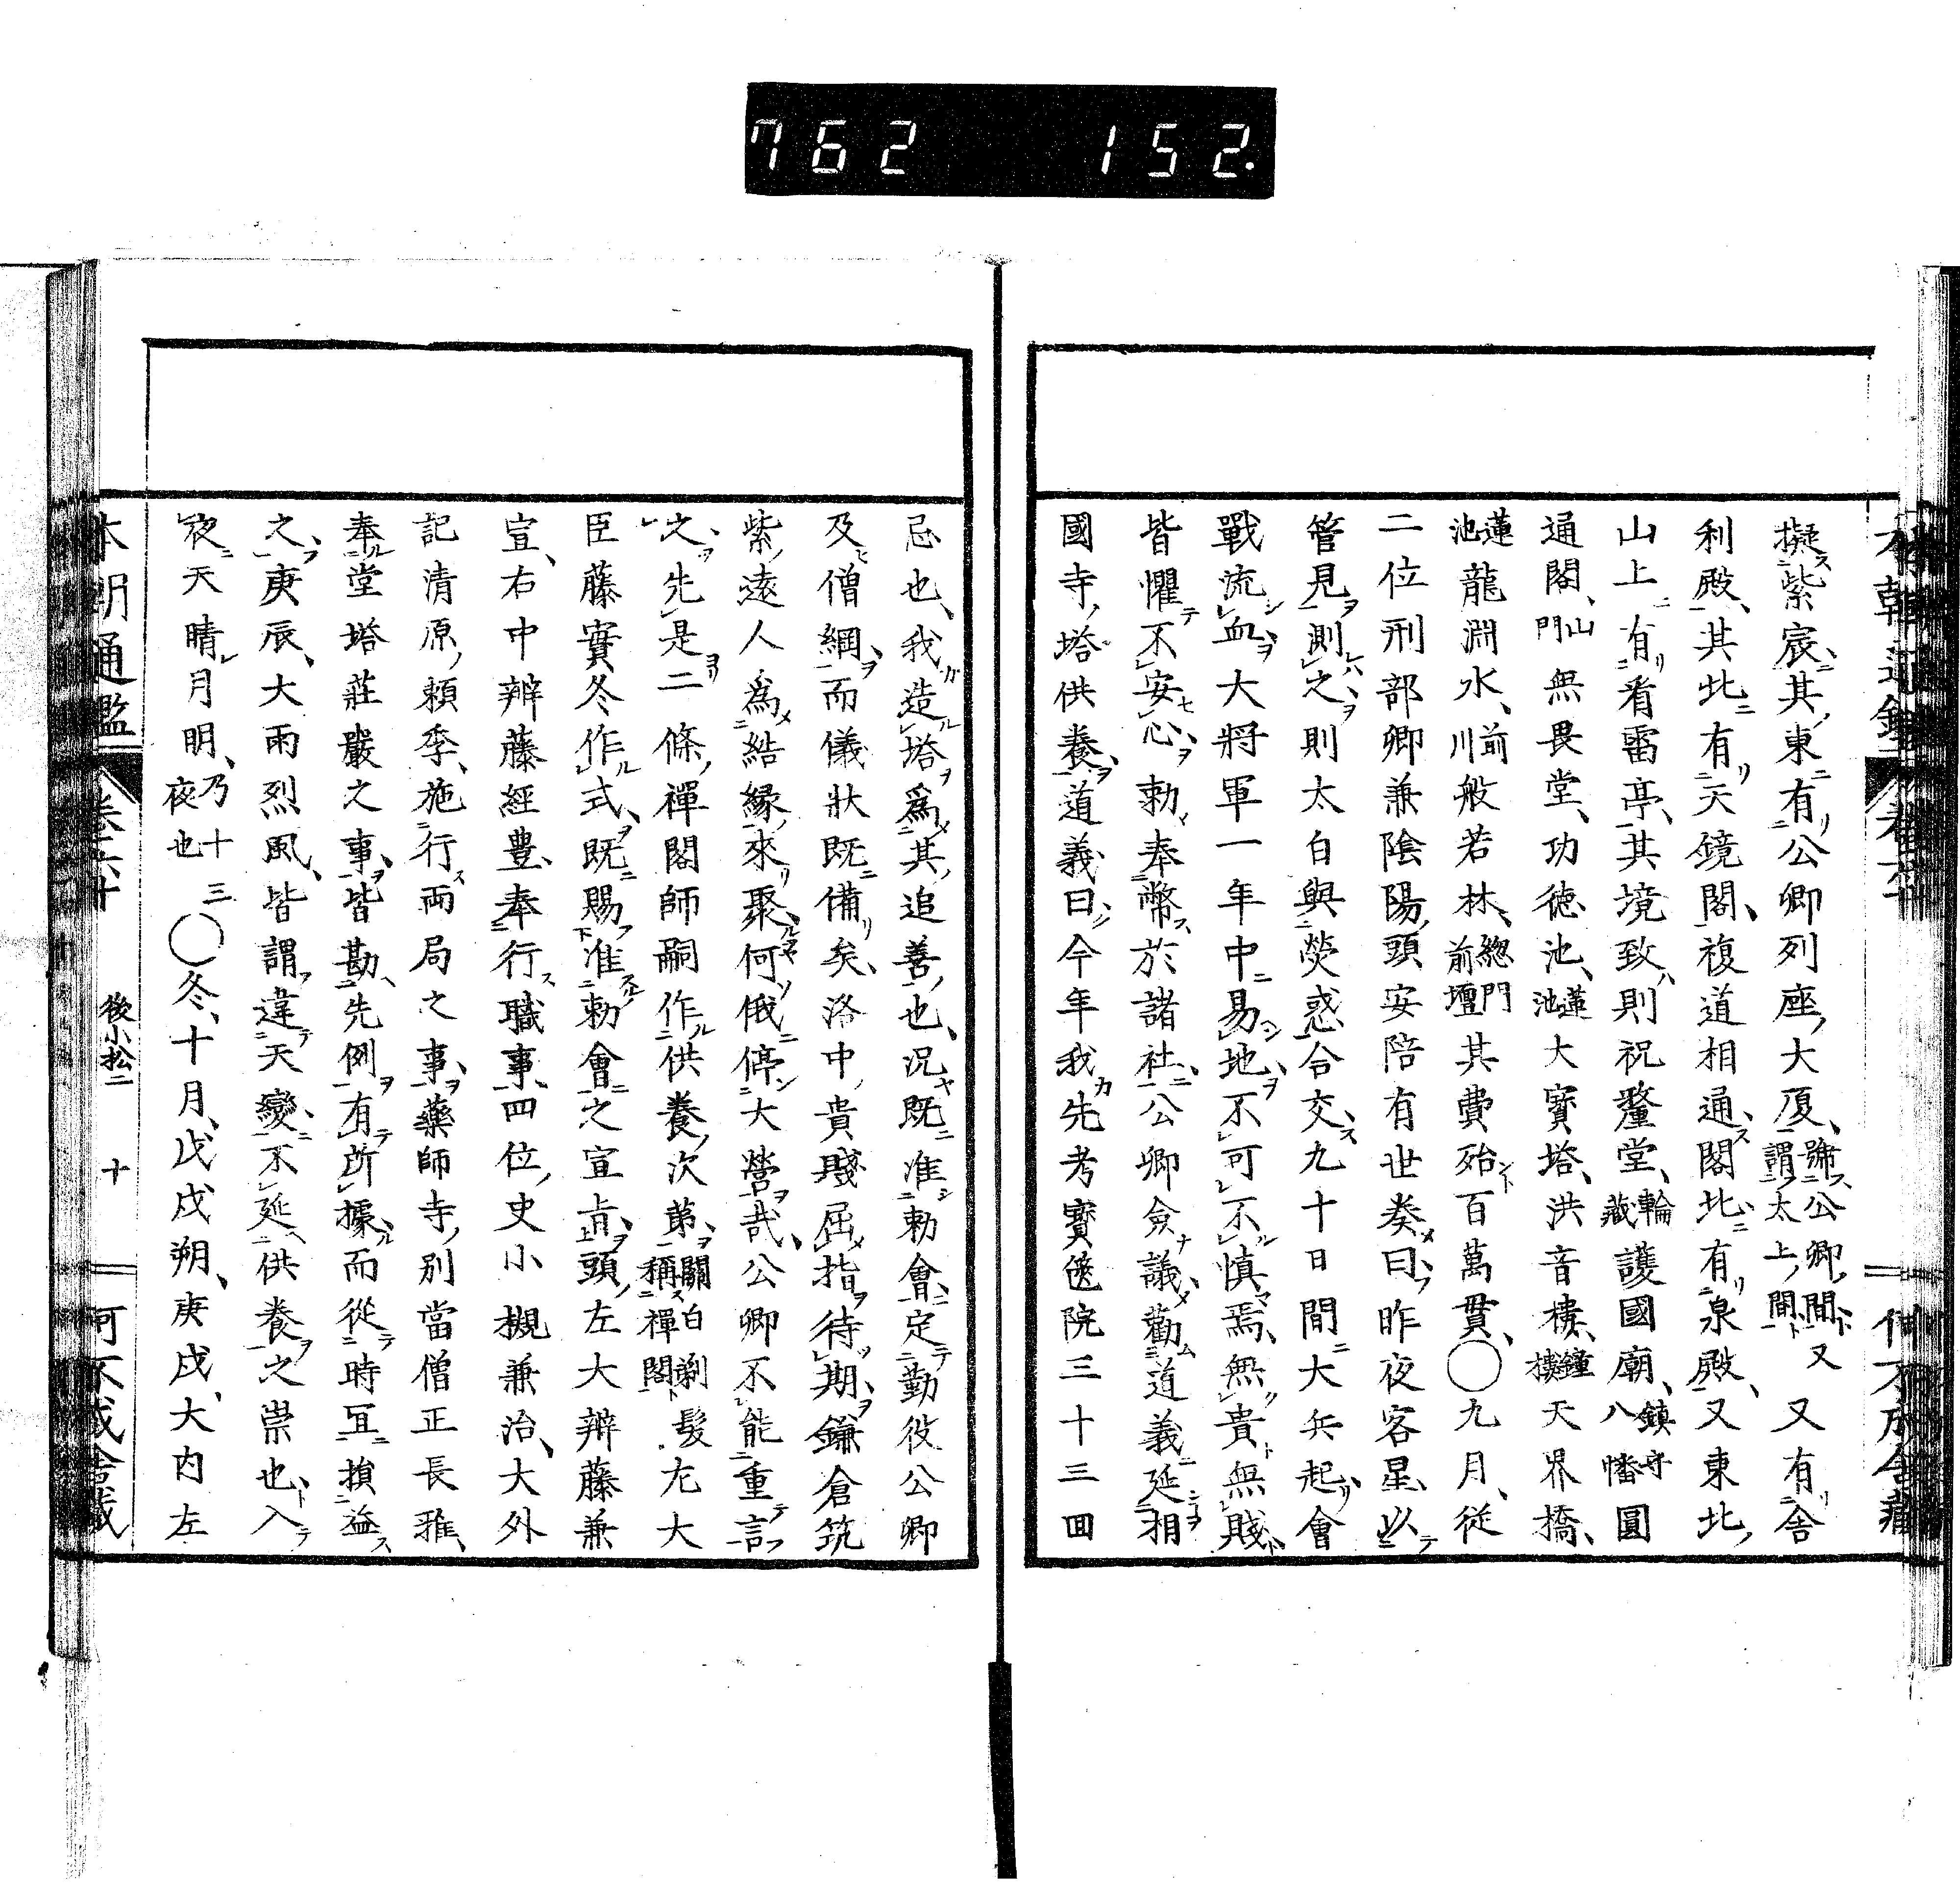 762 152.
擬紫宸其東有公卿列座大廈號公卿間又謂太上間又有舍
利殿其北有天鏡閣複道相通閣北有泉殿又東北
山上有看雪亭其境致則祝釐堂輪藏護國廟鎮守八幡圓
通閣山門無畏堂功德池蓮池大寶塔洪音樓鐘樓天界橋
蓮池龍淵水前川般若林總門前壇其費殆百萬貫〇九月從
二位刑部卿兼陰陽頭安陪有世奏曰昨夜客星以
管見測之則太白與熒惑合交九十日間大兵起會
戰流血大將軍一年中易地不可不慎焉無貴無賤
皆懼不安心勅奉幣於諸社公卿僉議勸道義延相
國寺塔供養道義曰今年我先考寶篋院三十三回
忌也我造塔爲其追善也況既准勅會定勤役公卿
及僧綱而儀狀既備矣洛中貴賤屈指待期鎌倉筑
紫遠人爲結緣來聚何俄停大營哉公卿不能重言
之先是二條禪閤師嗣作供養次第關白剃髮稱禪閤尤大
臣藤實冬作式既賜准勅會之宣旨頭左大辨藤兼
宣右中辨藤經豊奉行職事四位史小槻兼治大外
記清原賴季施行兩局之事藥師寺別當僧正長雅
奉堂塔莊嚴之事皆勘先例有所據而從時宜損益
之庚辰大雨烈風皆謂違天變不延供養之祟也入
夜天晴月明乃十三夜也〇冬十月戊戌朔庚戌大内左
本朝通鑑 卷六十 後小松二 十